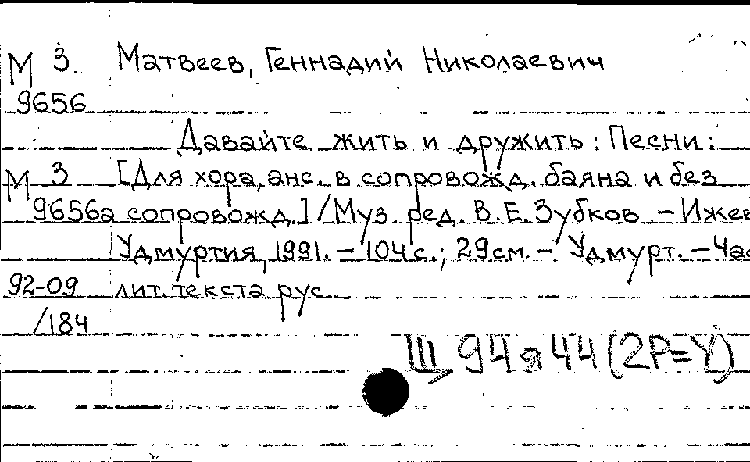 М 3. Матвеев, Геннадий Николаевич
9656
Давайте жить и дружить: Песни:
М 3 [Для хора, анс. в сопровожд. баяна и без
9656а сопровожд.] / Муз. ред. В. Е. Зубков. – Ижев
Удмуртия, 1991. – 104 с.; 29 см. – Удмурт. – Час
92-09 лит. текста рус.
/184
Щ 94 я 44 (2Р=У)